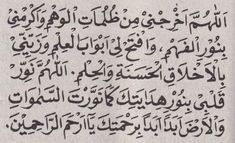 اَللّٰهُمَّ اَخْرِجْنِيْ مِنْ ظُلُمَاتِ الْوَهْمِ وَاَكْرِمْنِيْ
بِنُوْرِ الْفَهْمِ، وَافْتَحْ لِيْ اَبْوَابَ الْعِلْمِ وَزَيِّنِّيْ
بِالْاَخْلَاقِ الْحَسَنَةِ وَالْحِلْمِ. اَللّٰهُمَّ نَوِّرْ
قَلْبِيْ بِنُوْرِ هِدَايَتِكَ كَمَا نَوَّرْتَ السَّمٰوَاتِ
وَالْاَرْضَ اَبَدًا اَبَدًا بِرَحْمَتِكَ يَا اَرْحَمَ الرَّاحِمِيْنَ.